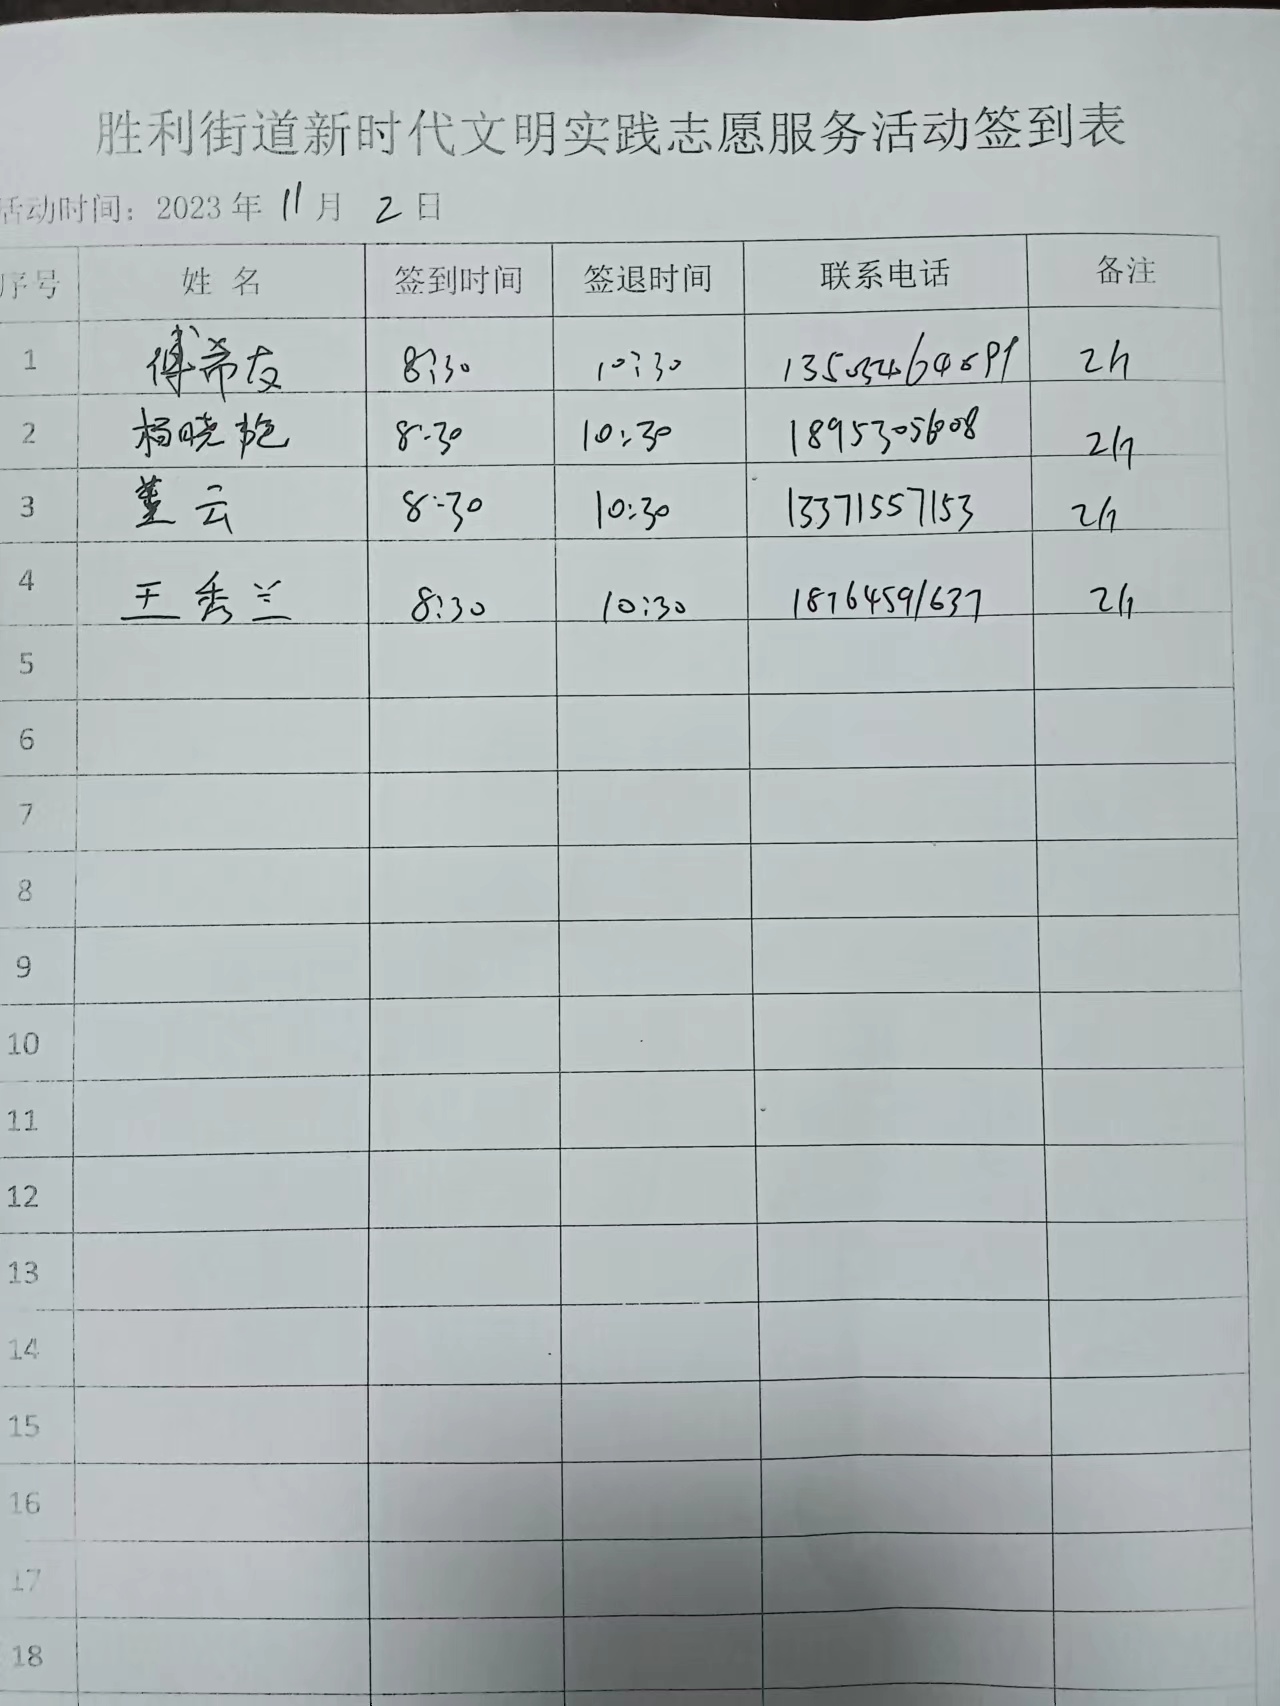 胜利街道新时代文明实践志愿服务活动签到表
活动时间：2023 年 11 月 2 日
序号 姓 名 签到时间 签退时间 联系电话 备注
1 傅希友 8:30 10:30 2h
2 杨晓艳 8:30 10:30 1895305608 2h
3 董云 8:30 10:30 13371557153 2h
4 王秀兰 8:30 10:30 18764591637 2h
5
6
7
8
9
10
11
12
13
14
15
16
17
18